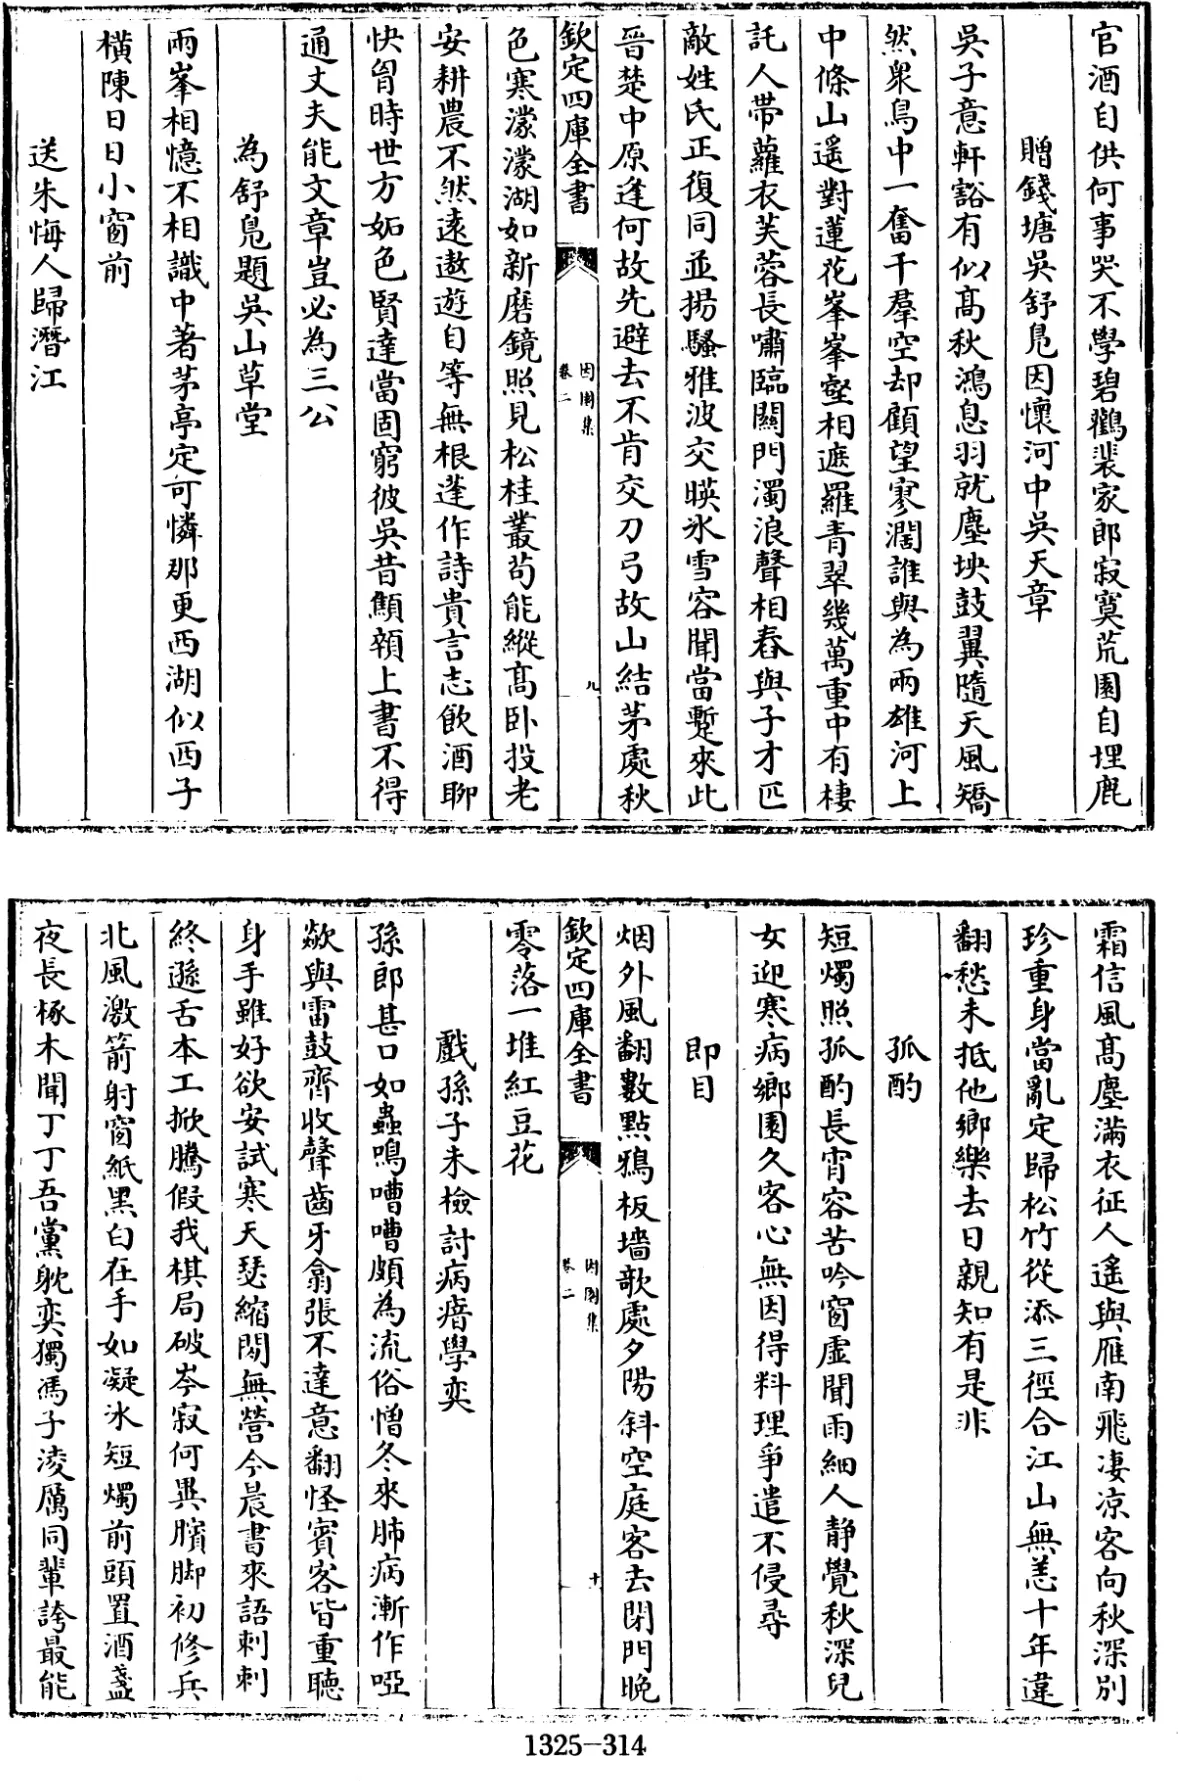 官酒自供何事哭不學碧鸛裴家郎寂寞荒園自埋鹿
贈錢塘吳舒鳧因懷河中吳天章
吳子意軒豁有似髙秋鴻息羽就塵坱鼓翼隨天風矯
然衆鳥中一奮千羣空却顧望寥濶誰與為兩雄河上
中條山遥對蓮花峯峯壑相遮羅青翠幾萬重中有棲
託人帶蘿衣芙蓉長嘯臨關門濁浪聲相舂與子才匹
敵姓氏正復同並揚騷雅波交暎氷雪容聞當蹔來此
晉楚中原逢何故先避去不肯交刀弓故山結茅處秋
欽定四庫全書
因園集
卷二
九
色寒濛濛湖如新磨鏡照見松桂叢茍能縱髙卧投老
安耕農不然遠遨遊自等無根蓬作詩貴言志飲酒聊
快胷時世方妬色賢達當固窮彼吳昔顦顇上書不得
通丈夫能文章豈必為三公
為舒鳧題吳山草堂
兩峯相憶不相識中著茅亭定可憐那更西湖似西子
橫陳日日小窗前
送朱悔人歸潛江
霜信風髙塵滿衣征人遥與雁南飛凄凉客向秋深别
珍重身當亂定歸松竹從添三徑合江山無恙十年違
翻愁未抵他鄉樂去日親知有是非
孤酌
短燭照孤酌長宵容苦吟窗虛聞雨細人静覺秋深兒
女迎寒病鄉園久客心無因得料理爭遣不侵尋
即目
烟外風翻數點鴉板墻歌處夕陽斜空庭客去閉門晚
欽定四庫全書
因園集
卷二
十
零落一堆紅豆花
戲孫子未檢討病瘖學奕
孫郎甚口如蟲鳴嘈嘈頗為流俗憎冬來肺病漸作啞
歘與雷鼓齊收聲齒牙翕張不達意翻怪賓客皆重聽
身手雖好欲安試寒天瑟縮閴無營今晨書來語刺刺
終遜舌本工掀騰假我棋局破岑寂何異臏脚初修兵
北風激箭射窗紙黑白在手如凝氷短燭前頭置酒盞
夜長椓木聞丁丁吾黨躭奕獨馮子淩厲同輩誇最能
1325-314